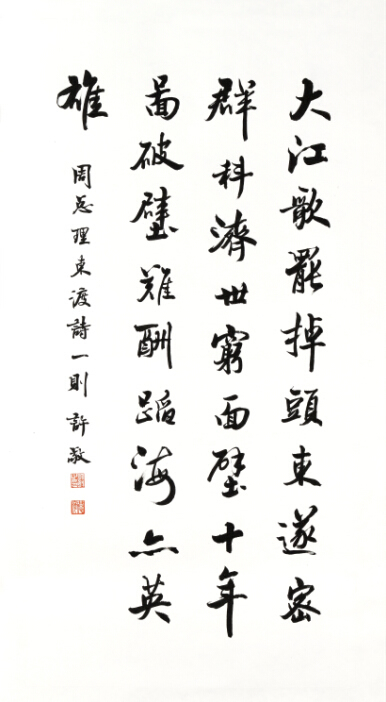 大江歌罷掉頭東邃密
群科濟世窮面壁十年
圖破壁難酬蹈海亦英
雄
周总理東渡詩一則 許敬